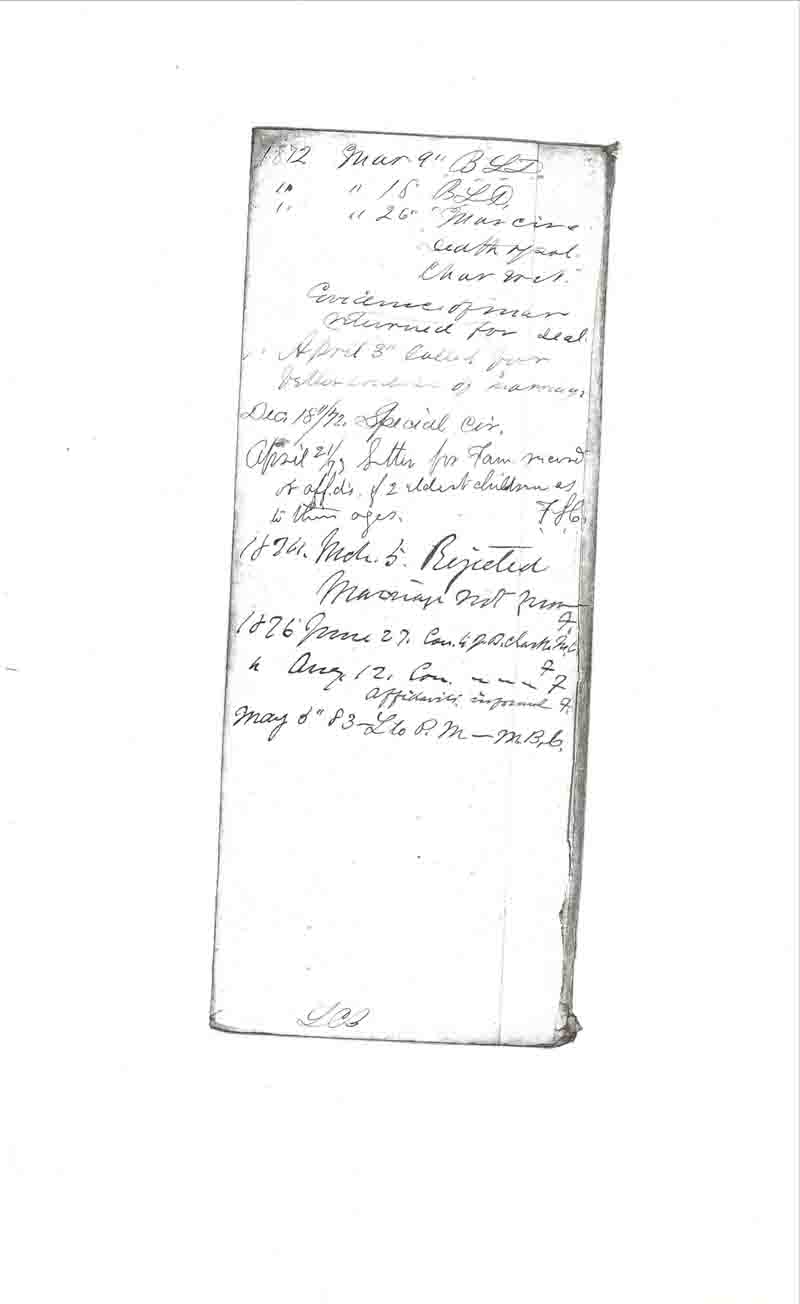 1872 Mar 9" B L D.
" " 15 B L D.
" " 26" Mar cir &
death of sol.
Char
Evidence of mar
returned for seal
" April 3" Called for
better evidence of marriage
Dec. 18"/72. Special Cir.
April 21/73 Letter for Fam record
or affds. of 2 eldest children as
to their ages. F.
1874. Mch. 5. Rejected
Marriage not
1876 June 27. Con. J. B. Clark M.C.
F
" Aug. 12. Con. " " " F
Affidavits informal F.
May 5" 83 - L to P. M - M.B.C.
LCB